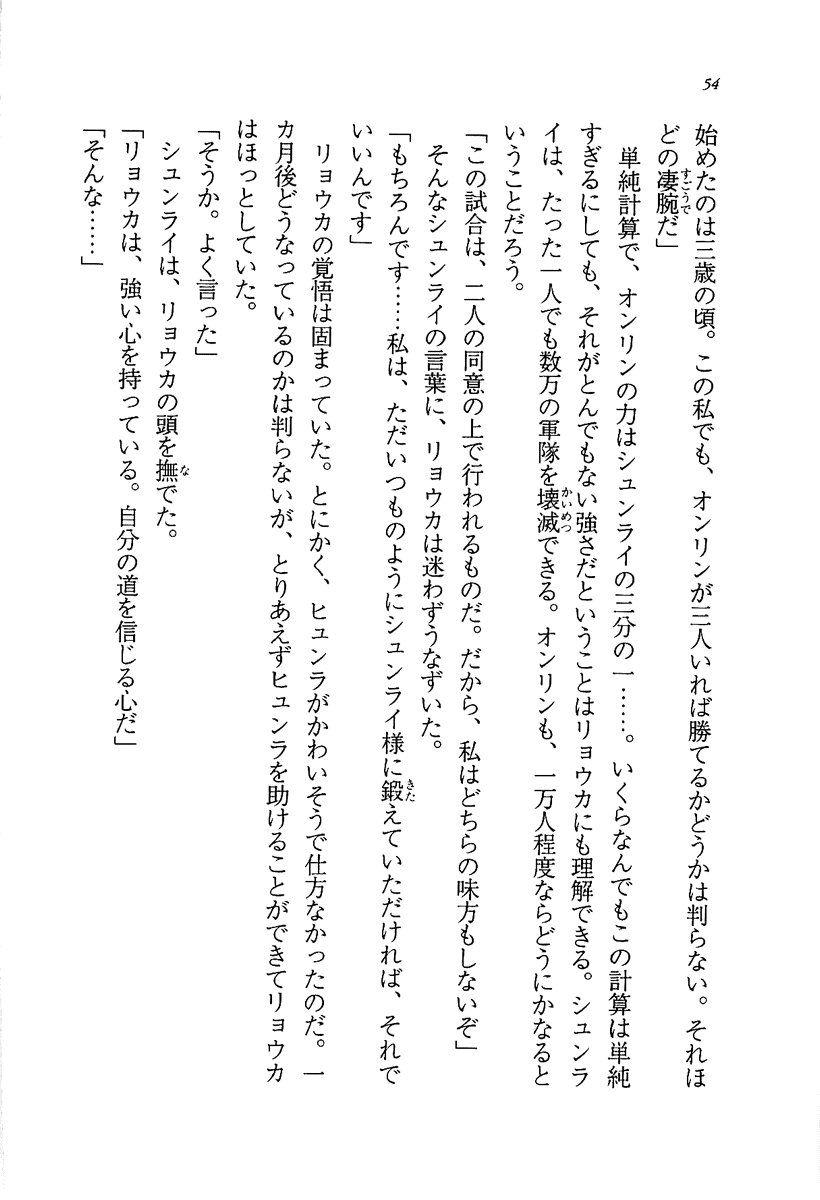 54
始めたのは三歳の頃。この私でも、オンリンが三人いれば勝てるかどうかは判らない。それほ
どの凄腕だ」
単純計算で、オンリンの力はシュンライの三分の一……。いくらなんでもこの計算は単純
すぎるにしても、それがとんでもない強さだということはリョウカにも理解できる。シュンラ
イは、たった一人でも数万の軍隊を壊滅できる。オンリンも、一万人程度ならどうにかなると
いうことだろう。
「この試合は、二人の同意の上で行われるものだ。だから、私はどちらの味方もしないぞ」
そんなシュンライの言葉に、リョウカは迷わずうなずいた。
「もちろんです……私は、ただいつものようにシュンライ様に鍛えていただければ、それで
いいんです」
リョウカの覚悟は固まっていた。とにかく、ヒュンラがかわいそうで仕方なかったのだ。一
カ月後どうなっているのかは判らないが、とりあえずヒュンラを助けることができてリョウカ
はほっとしていた。
「そうか。よく言った」
シュンライは、リョウカの頭を撫でた。
「リョウカは、強い心を持っている。自分の道を信じる心だ」
「そんな……」